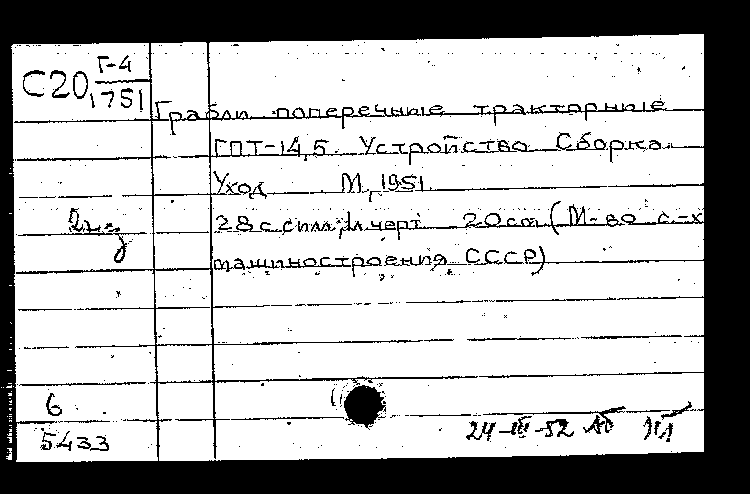 С20 Г-4
1751
Грабли поперечные тракторные
ГПТ-14,5. Устройство. Сборка.
Уход. М, 1951.
2 экз
28 с. с илл; 1 л. черт. 20 см. (М-во с.-х.
машиностроения СССР)
6
5433
24-III-52